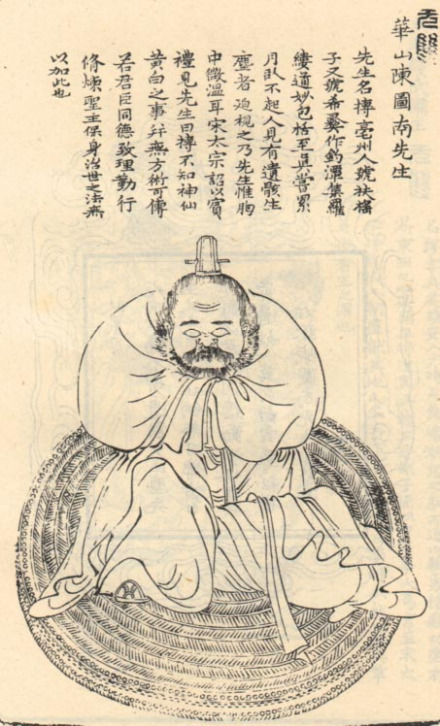 華山陳圖南先生
先生名摶亳州人號扶搖
子又號希夷作釣潭集羅
縷道妙包括至真嘗累
月臥不起人見有遺骸生
塵者迫視之乃先生惟胸
中微溫耳宋太宗詔以賓
禮見先生曰摶不知神仙
黃白之事并無方術可傳
若君臣同德致理勤行
修煉聖主保身治世之法無
以加此也